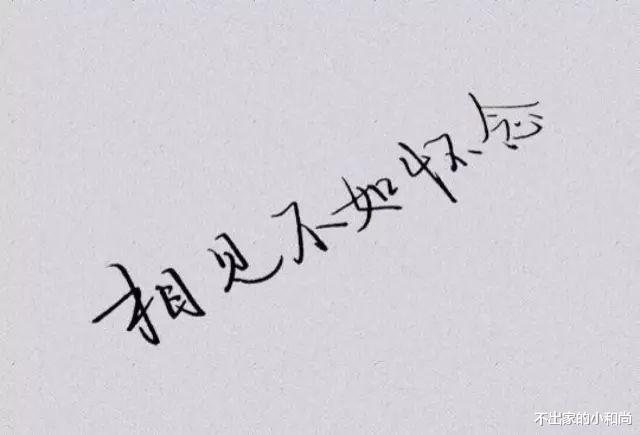 相见不如怀念
不出家的小和尚